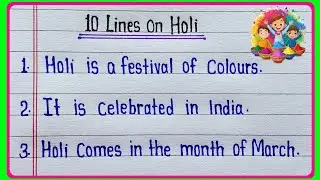 10 Lines on Holi
1. Holi is a festival of Colours.
2. It is Celebrated in India.
3. Holi Comes in the month of March.